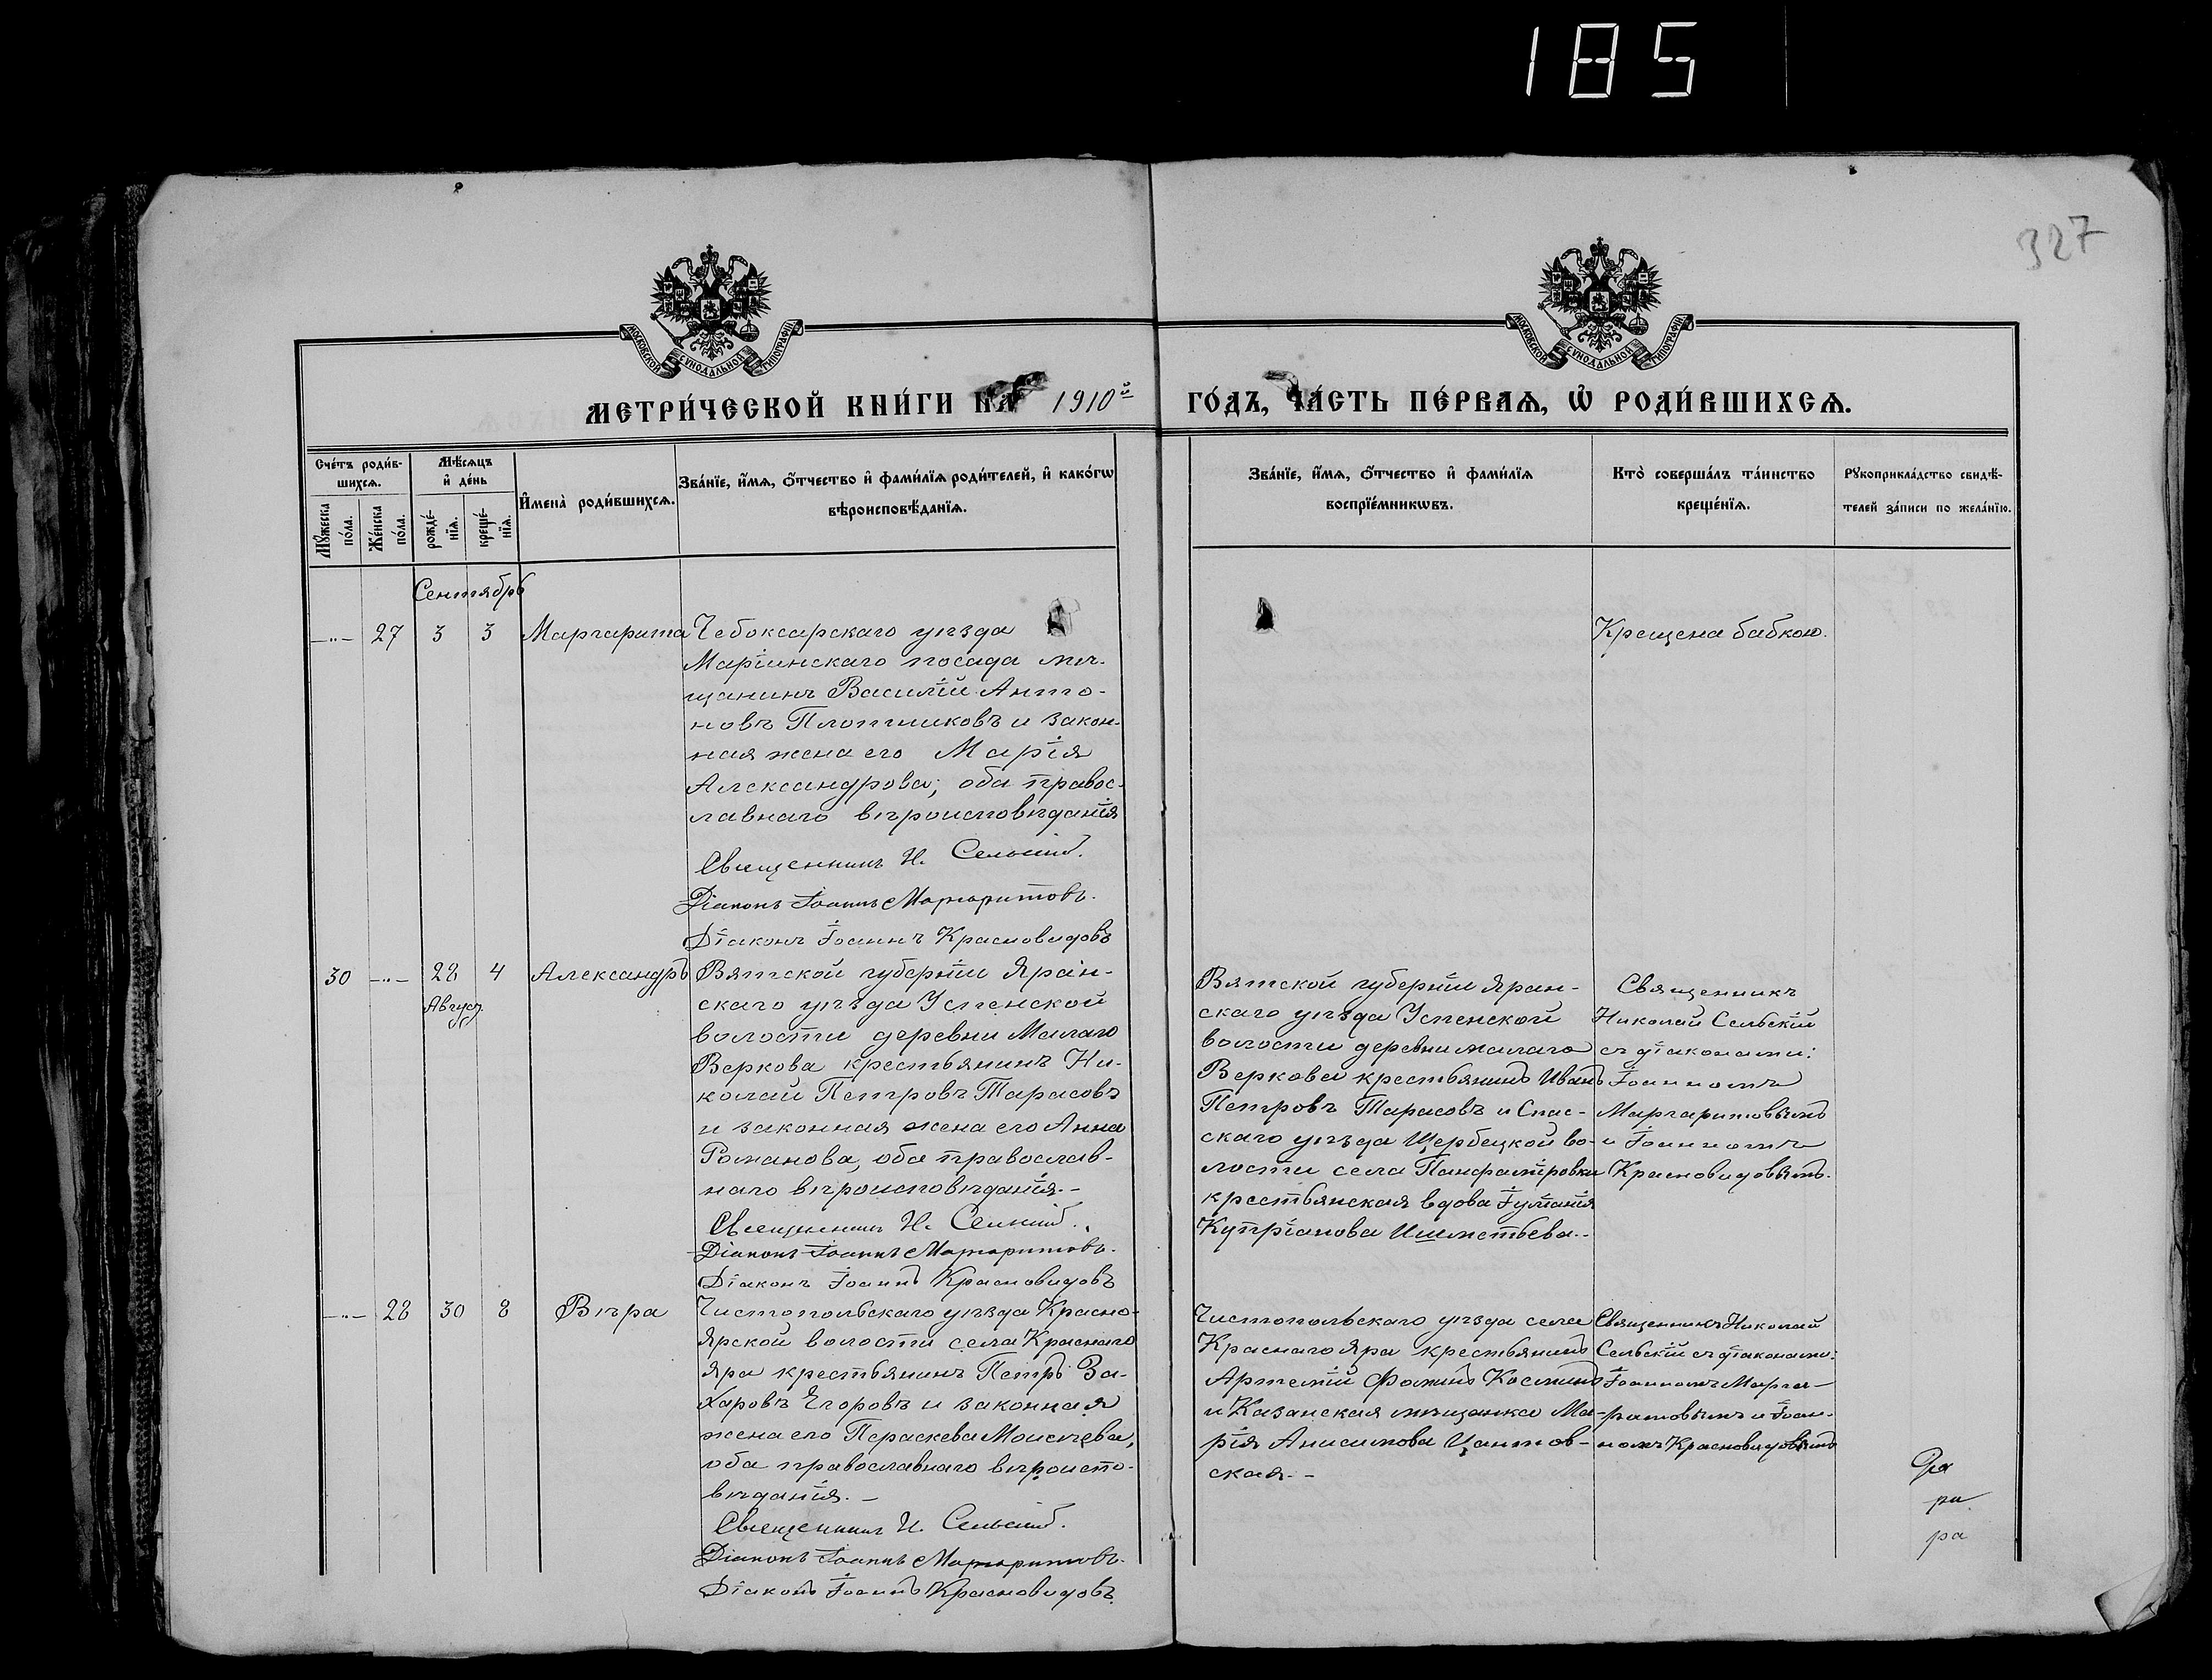 185
327
МОСКОВСКОЙ СѴНОДАЛЬНОЙ ТИПОГРАФІИ
МОСКОВСКОЙ СѴНОДАЛЬНОЙ ТИПОГРАФІИ
МЕТРИ́ЧЕСКОЙ КНИ́ГИ НА 1910й ГО́ДЪ, ЧА́СТЬ ПЕ́РВАѦ, Ѡ҆ РОДИ́ВШИХСѦ.
Сче́тъ роди́в-
шихсѧ.
Мꙋ́жеска
по́ла.
Же́нска
по́ла.
Мѣ́сѧцъ
и҆ де́нь
рожде́-
нїѧ.
креще́-
нїѧ.
И҆мена̀ роди́вшихсѧ.
Зва́нїе, и҆́мѧ, ѻ҆́тчество и҆ фами́лїѧ роди́телей, и҆ како́гѡ
вѣроисповѣ́данїѧ.
Зва́нїе, и҆́мѧ, ѻ҆́тчество и҆ фами́лїѧ
воспрїе́мникѡвъ.
Кто̀ соверша́лъ та́инство
креще́нїѧ.
Рꙋкоприкла́дство свидѣ́-
телей за́писи по жела́нїю.
Сентябрь
-"- 27 3 3 Маргарита
Чебоксарскаго уѣзда
Маріинскаго посада мѣ-
щанинъ Василій Анто-
новъ Плотниковъ и закон-
ная жена его Марія
Александрова; оба правос-
лавнаго вѣроисповѣданія
Священникъ Н. Сельскій.
Діаконъ Іоаннъ Маргаритовъ.
Діаконъ Іоаннъ Красновидовъ
Крещена бабкою.
30 -"- 28 4 Александръ
Август.
Вятской губерніи Яран-
скаго уѣзда Успенской
волости деревни Малаго
Веркова крестьянинъ Ни-
колай Петровъ Тарасовъ
и законная жена его Анна
Романова, оба православ-
наго вѣроисповѣданія.-
Священникъ Н. Сельскій.
Діаконъ Іоаннъ Маргаритовъ.
Діаконъ Іоаннъ Красновидовъ
Вятской губерніи Яран-
скаго уѣзда Успенской
волости деревни малаго
Веркова крестьянинъ Иванъ
Петровъ Тарасовъ и Спас-
скаго уѣзда Щербецкой во-
лости села
крестьянская вдова Іуліанія
Купріанова
Священникъ
Николай Сельскій
съ діаконами:
Іоанномъ
Маргаритовымъ
и Іоанномъ
Красновидовымъ.
-"- 28 30 8 Вѣра
Чистопольскаго уѣзда Красно-
Ярской волости села Краснаго
Яра крестьянинъ Петръ За-
харовъ Егоровъ и законная
жена его Параскева Моисеева,
оба православнаго вѣроиспо-
вѣданія.-
Священникъ Н. Сельскій.
Діаконъ Іоаннъ Маргаритовъ.
Діаконъ Іоаннъ Красновидовъ.
Чистопольскаго уѣзда села
Краснаго Яра крестьянинъ
Артемій Фоминъ Косминъ
и Казанская мѣщанка Ма-
рія Анисимова Цантов-
ская.-
Священникъ Николай
Сельскій съ діаконами:
Іоанномъ Марга-
ритовымъ и Іоан-
номъ Красновидовымъ
ра
ра